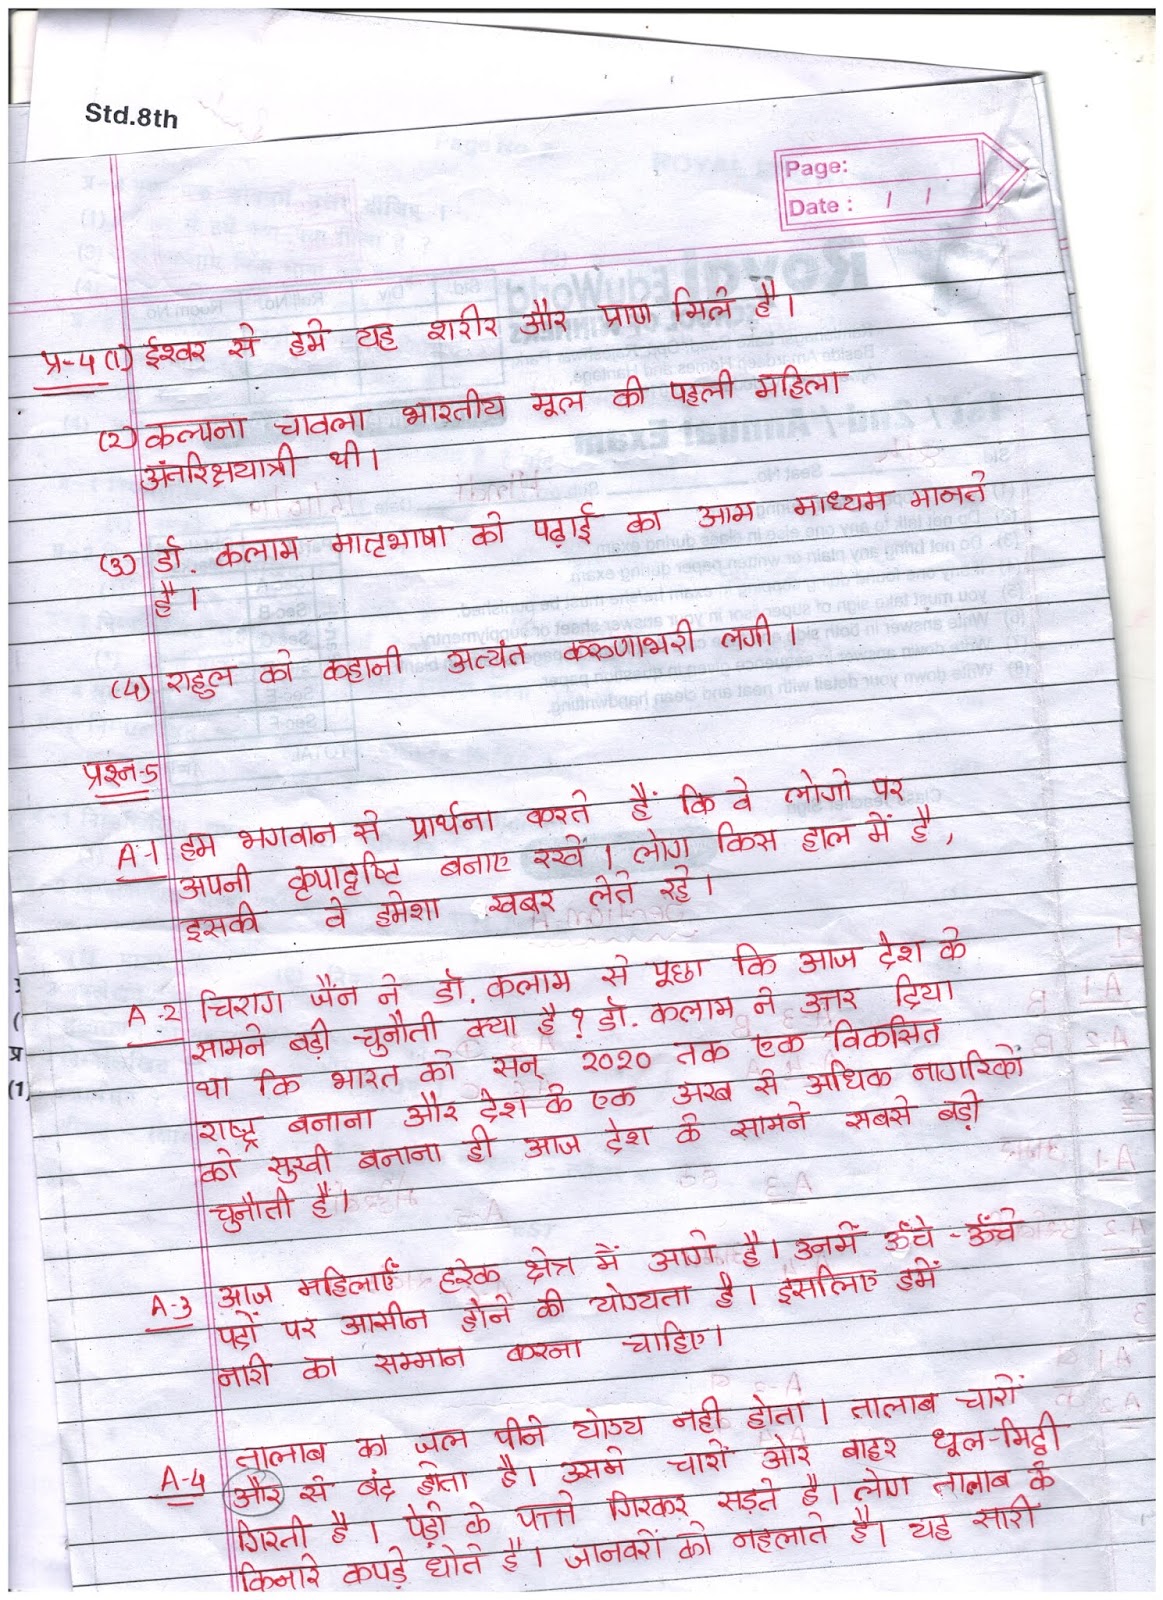 Std.8th
Page:
Date : / /
प्र-4 (1) ईश्वर से हमे यह शरीर और प्राण मिले है।
(2) कल्पना चावला भारतीय मूल की पहली महिला
अंतरिक्षयात्री थी।
(3) डॉ. कलाम मातृभाषा को पढ़ाई का आम माध्यम मानते
है।
(4) राहुल को कहानी अत्यंत करुणाभरी लगी।
प्रश्न-5
A-1 हम भगवान से प्रार्थना करते हैं कि वे लोगो पर
अपनी कृपादृष्टि बनाए रखें। लोग किस हाल में है,
इसकी वे हमेशा खबर लेते रहे।
A-2 चिराग जैन ने डॉ. कलाम से पूछा कि आज देश के
सामने बड़ी चुनौती क्या है? डॉ. कलाम ने उत्तर दिया
था कि भारत को सन् 2020 तक एक विकसित
राष्ट्र बनाना और देश के एक अरब से अधिक नागरिकों
को सुखी बनाना ही आज देश के सामने सबसे बड़ी
चुनौती हैं।
A-3 आज महिलाएँ हरेक क्षेत्र में आगे है। उनमें ऊँचे-ऊँचे
पदों पर आसीन होने की योग्यता है। इसलिए हमें
नारी का सम्मान करना चाहिए।
A-4 तालाब का जल पीने योग्य नही होता। तालाब चारों
और से बंद होता है। उसमे चारों और बाहर धूल-मिट्टी
गिरती है। पेड़ो के पत्ते गिरकर सड़ते है। लोग तालाब के
किनारे कपड़े धोते है। जानवरों को नहलाते है। यह सारी
प्र
(1)